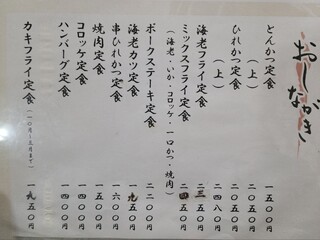 おしながき
とんかつ定食 一五〇〇円
〃（上） 二〇五〇円
ひれかつ定食 二〇五〇円
〃（上） 二四八〇円
海老フライ定食 二三五〇円
ミックスフライ定食 二四五〇円
（海老・いか・コロッケ・一口かつ・焼肉）
ポークステーキ定食 二二〇〇円
海老カツ定食 一九五〇円
串ひれかつ定食 一六〇〇円
焼肉定食 一五〇〇円
コロッケ定食 一四〇〇円
ハンバーグ定食 一四〇〇円
カキフライ定食（一〇月〜三月まで） 一九五〇円